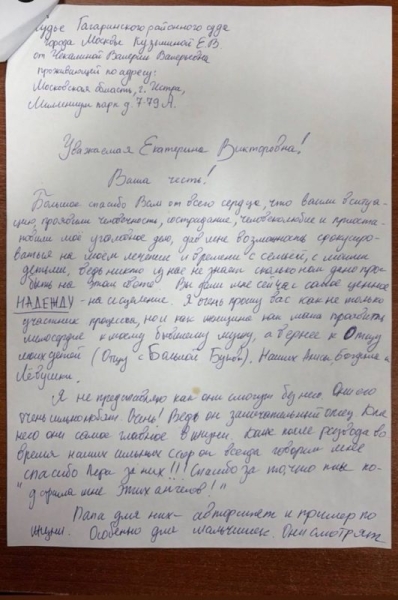 Судье Гагаринского районного суда
города Москвы Кузьминой Е.В
от Чекалиной Валерии Валерьевны
проживающей по адресу:
Московская область, г. Истра,
Миллениум парк д. 7-79 А.
Уважаемая Екатерина Викторовна!
Ваша честь!
Большое спасибо Вам от всего сердца, что вошли в ситуа-
цию, проявили человечность, сострадание, человеколюбие и приоста-
новили моё уголовное дело, дав мне возможность сфокусиро-
ваться на моём лечении и времени с семьей, с моими
детьми, ведь никто из нас не знает сколько нам дано про-
быть на этом свете. Вы дали мне сейчас самое ценное
НАДЕЖДУ - на исцеление. Я очень прошу вас как не только
участник процесса, но и как женщина как мама проявить
милосердие к моему бывшему мужу, а вернее к Отцу
моих детей (Отцу с Большой Буквы). Наших Алисы, Богдана и
Лёвушки.
Я не представляю как они смогут без него. Они его
очень сильно любят. Очень! Ведь он замечательный отец. Для
него они самое главное в жизни. Даже после развода во
время наших сильных ссор он всегда говорит мне
спасибо Лера за них!!! Спасибо за то, что ты по-
"дарила мне этих ангелов!"
Папа для них - авторитет и пример по
жизни. Особенно для мальчишек. Они смотрят